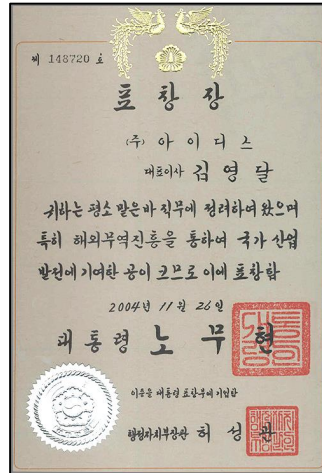 제 148720 호
표 창 장
(주) 아 이 디 스
대표이사 김 영 달
귀하는 평소 맡은바 직무에 정려하여 왔으며
특히 해외무역진흥을 통하여 국가 산업
발전에 기여한 공이 크므로 이에 표창함
2004년 11월 26일
대 통 령 노 무 현
이증을 대통령 표창부에 기입함
행정자치부장관 허 성 관